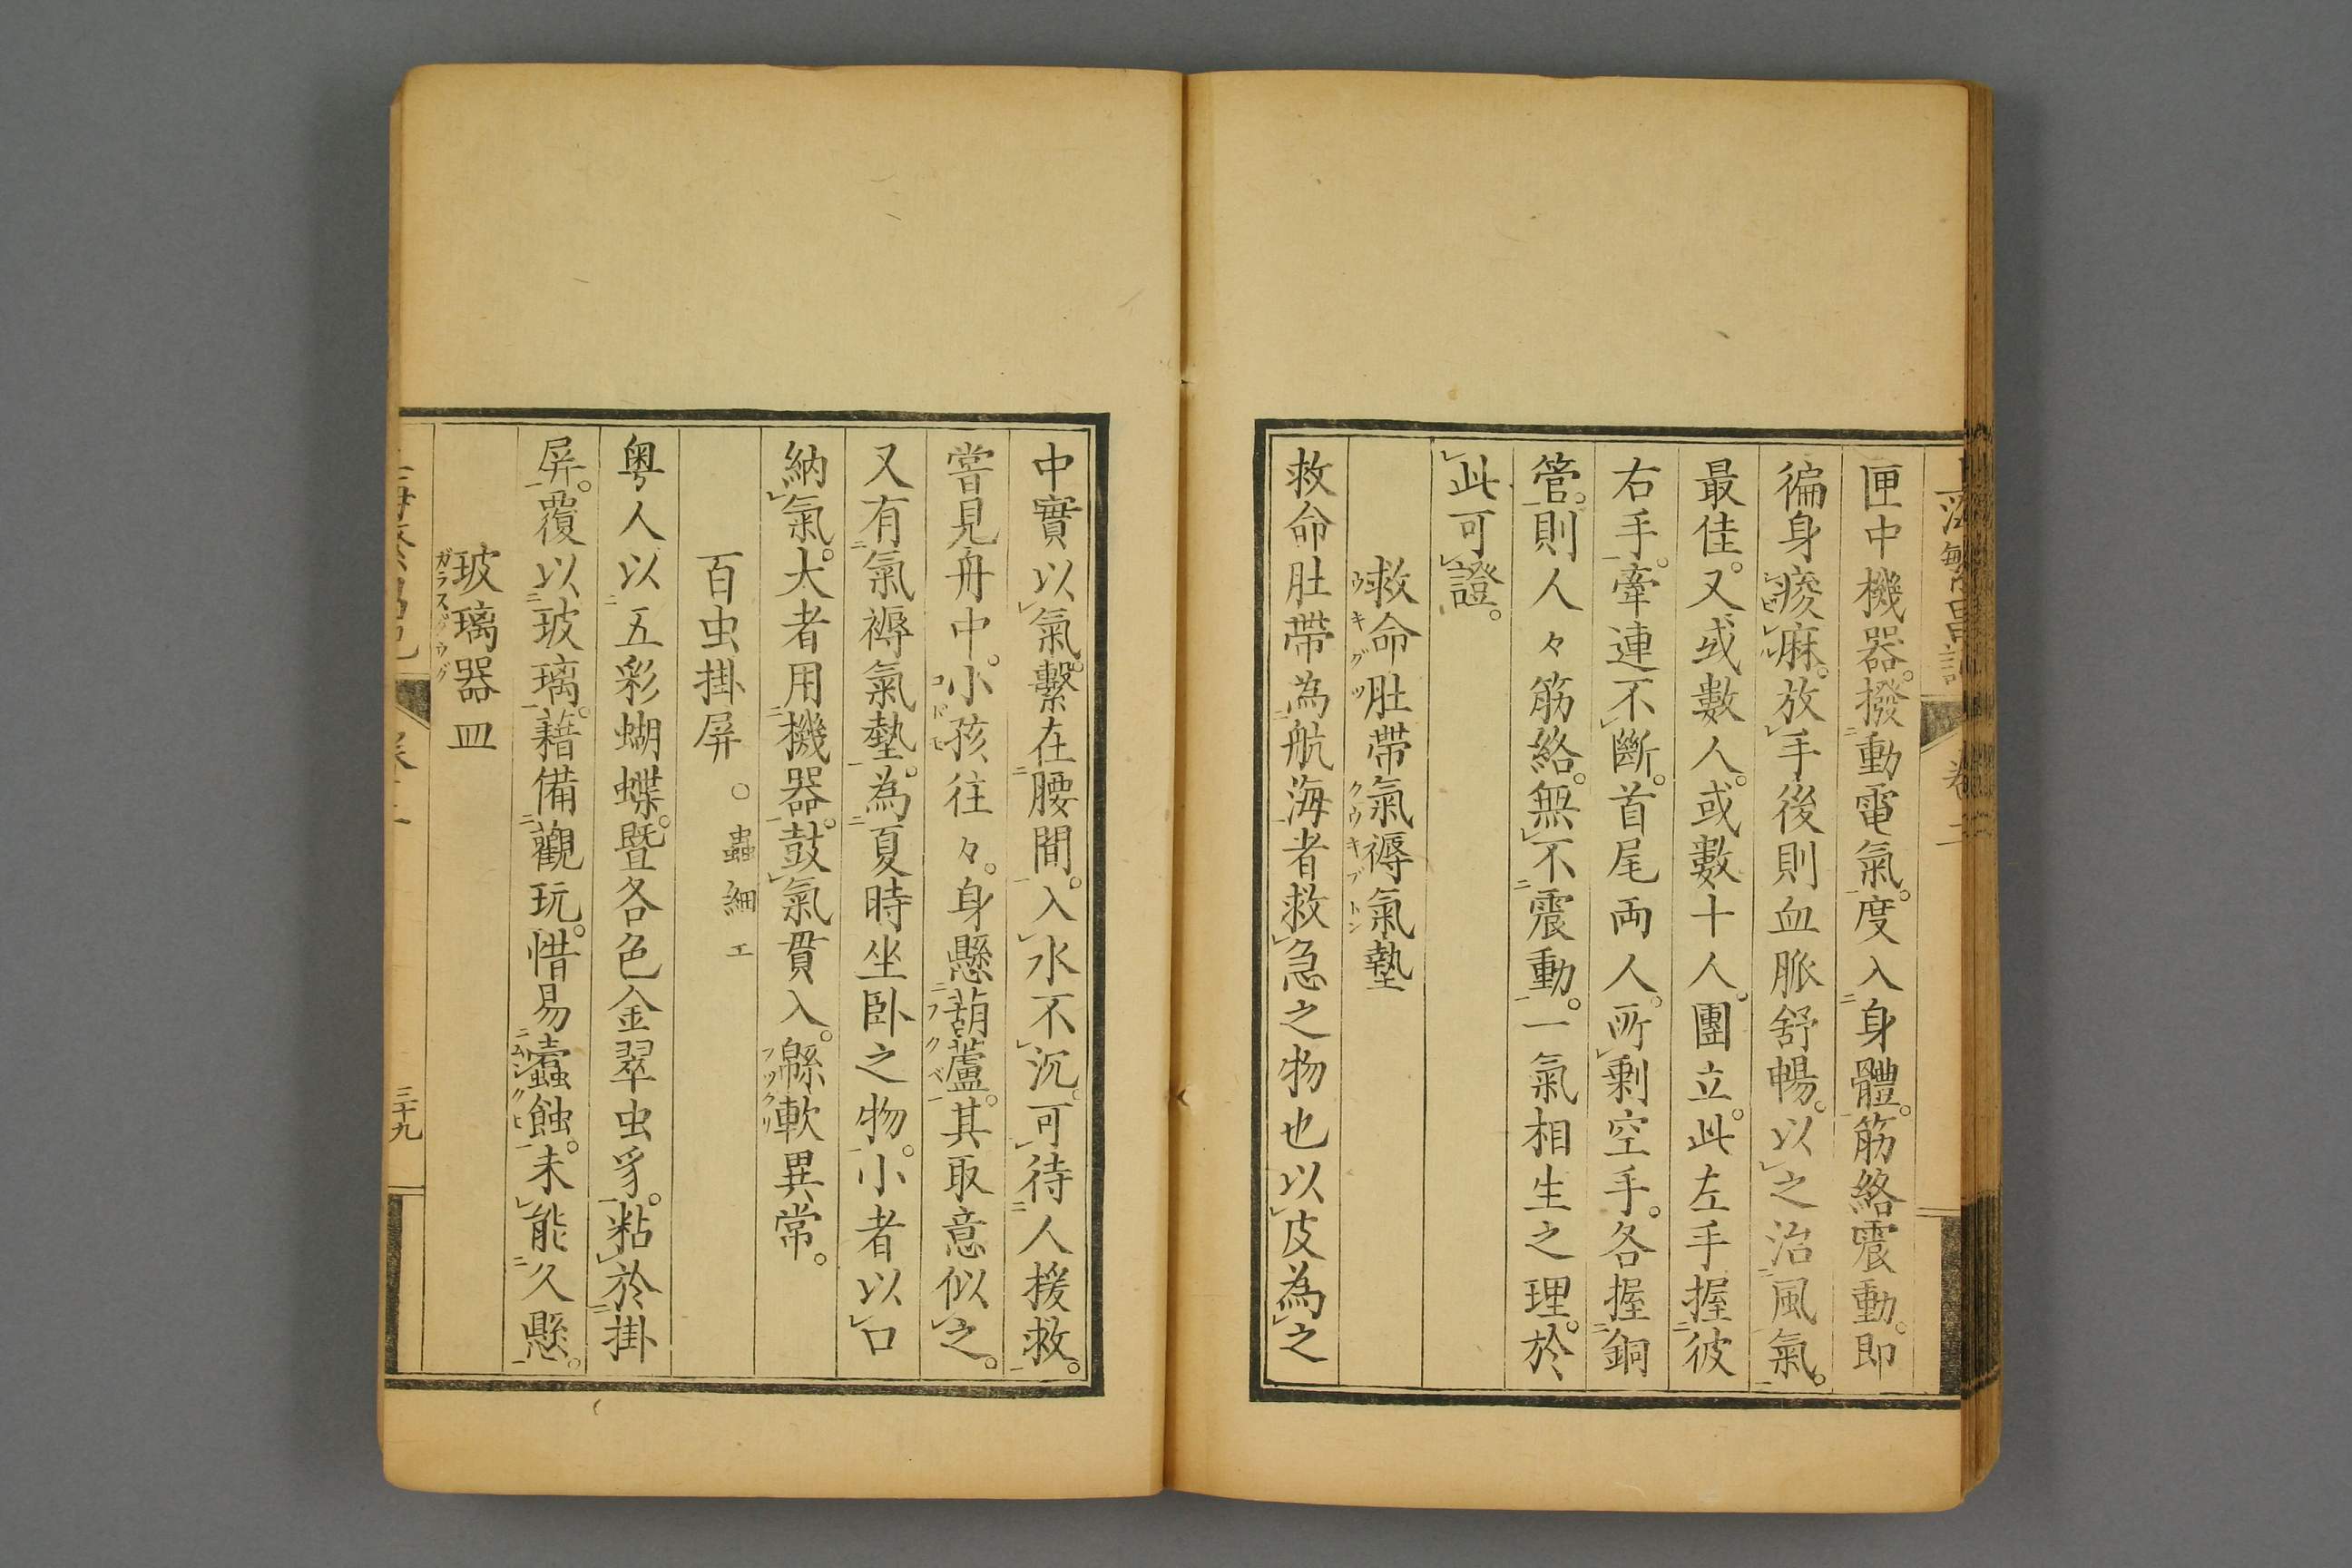 匣中機器。撥動電氣。度入身體。筋絡震動。即
徧身痠麻。放手後則血脈舒暢。以之治風氣。
最佳。又或數人。或數十人。團立。此左手握彼
右手。牽連不斷。首尾両人。所剩空手。各握銅
管。則人々筋絡。無不震動。一氣相生之理。於
此可證。
救命肚帶氣褥氣墊
ウキグツ
クウキブトン
救命肚帶為航海者救急之物也以皮為之
中實以氣。繫在腰間。入水不沉。可待人援救。
嘗見舟中。小孩往々。身懸葫蘆。其取意似之。
コドモ
フクベ
又有氣褥氣墊。為夏時坐臥之物。小者以口
納氣。大者用機器。鼓氣貫入。緜軟異常。
フックリ
百虫掛屏 ○蟲細工
粤人以五彩蝴蝶。暨各色金翠虫豸。粘於掛
屏。覆以玻璃。藉備觀玩。惜易蠹蝕。未能久懸。
ムシクヒ
玻璃器皿
ガラスダウグ
卷二
三十九